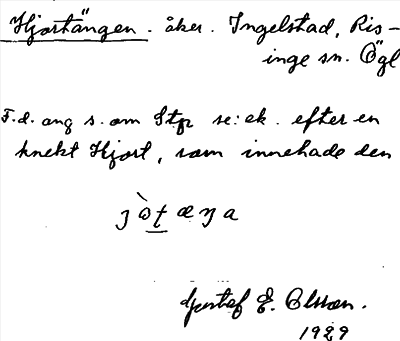 Hjortängen. åker. Ingelstad, Ris-
inge sn. Ögl
F.d. äng s. om Stp se: ek. efter en
knekt Hjort, som innehade den
Gustaf E. Olsson.
1929